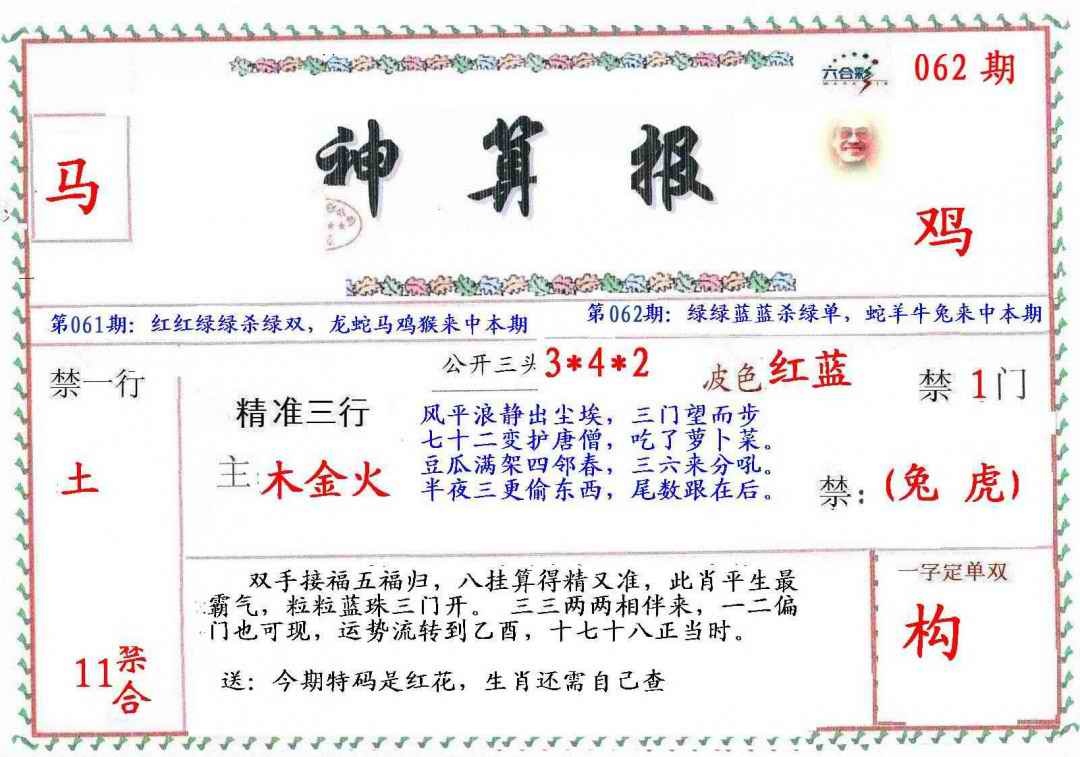 六合彩
062 期
马
神算报
鸡
第061期：红红绿绿杀绿双，龙蛇马鸡猴来中本期
第062期：绿绿蓝蓝杀绿单，蛇羊牛兔来中本期
禁一行
土
11禁合
公开三头3*4*2
波色红蓝
禁1门
精准三行
主:木金火
风平浪静出尘埃，三门望而步
七十二变护唐僧，吃了萝卜菜。
豆瓜满架四邻春，三六来分吼。
半夜三更偷东西，尾数跟在后。
禁：(兔 虎)
双手接福五福归，八挂算得精又准，此肖平生最
霸气，粒粒蓝珠三门开。 三三两两相伴来，一二偏
门也可现，运势流转到乙酉，十七十八正当时。
送：今期特码是红花，生肖还需自己查
一字定单双
构